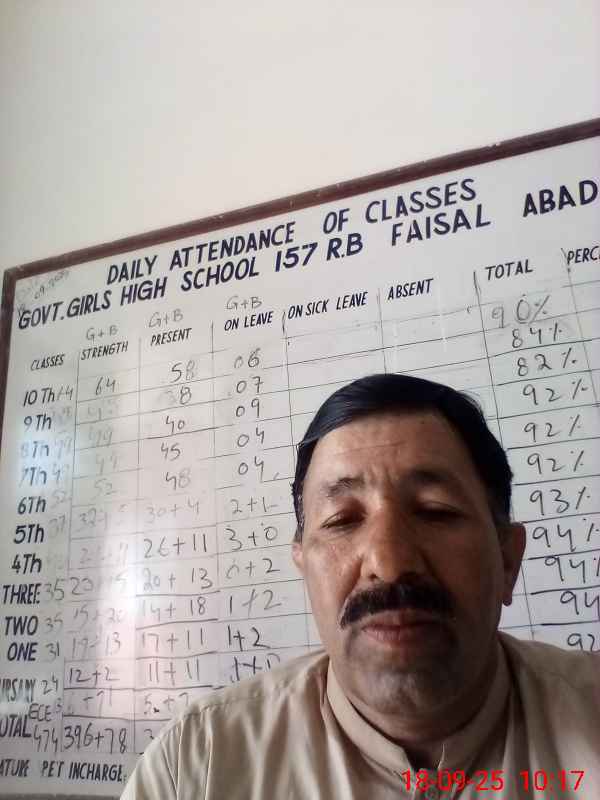 DAILY ATTENDANCE OF CLASSES
GOVT. GIRLS HIGH SCHOOL 157 R.B FAISAL ABAD
G+B G+B G+B
CLASSES STRENGTH PRESENT ON LEAVE ON SICK LEAVE ABSENT TOTAL PERC
10Th 64 58 06 90%
9Th 38 07 84%
8Th 49 40 09 82%
7Th 49 45 04 92%
6Th 52 48 04 92%
5Th 37 30+4 2+1 92%
4Th 26+11 3+0 93%
THREE 35 20+13 0+2 94%
TWO 35 15+20 14+18 1+2 94%
ONE 31 17+11 1+2 94
24 12+2 11+11 92
ECE
474 396+78
PET INCHARGE:
18-09-25 10:17